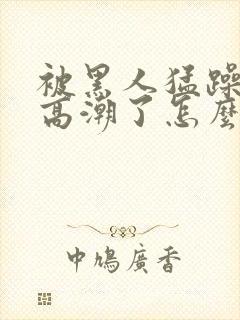 被黑人猛躁
高潮了怎麼
中鳩廣香